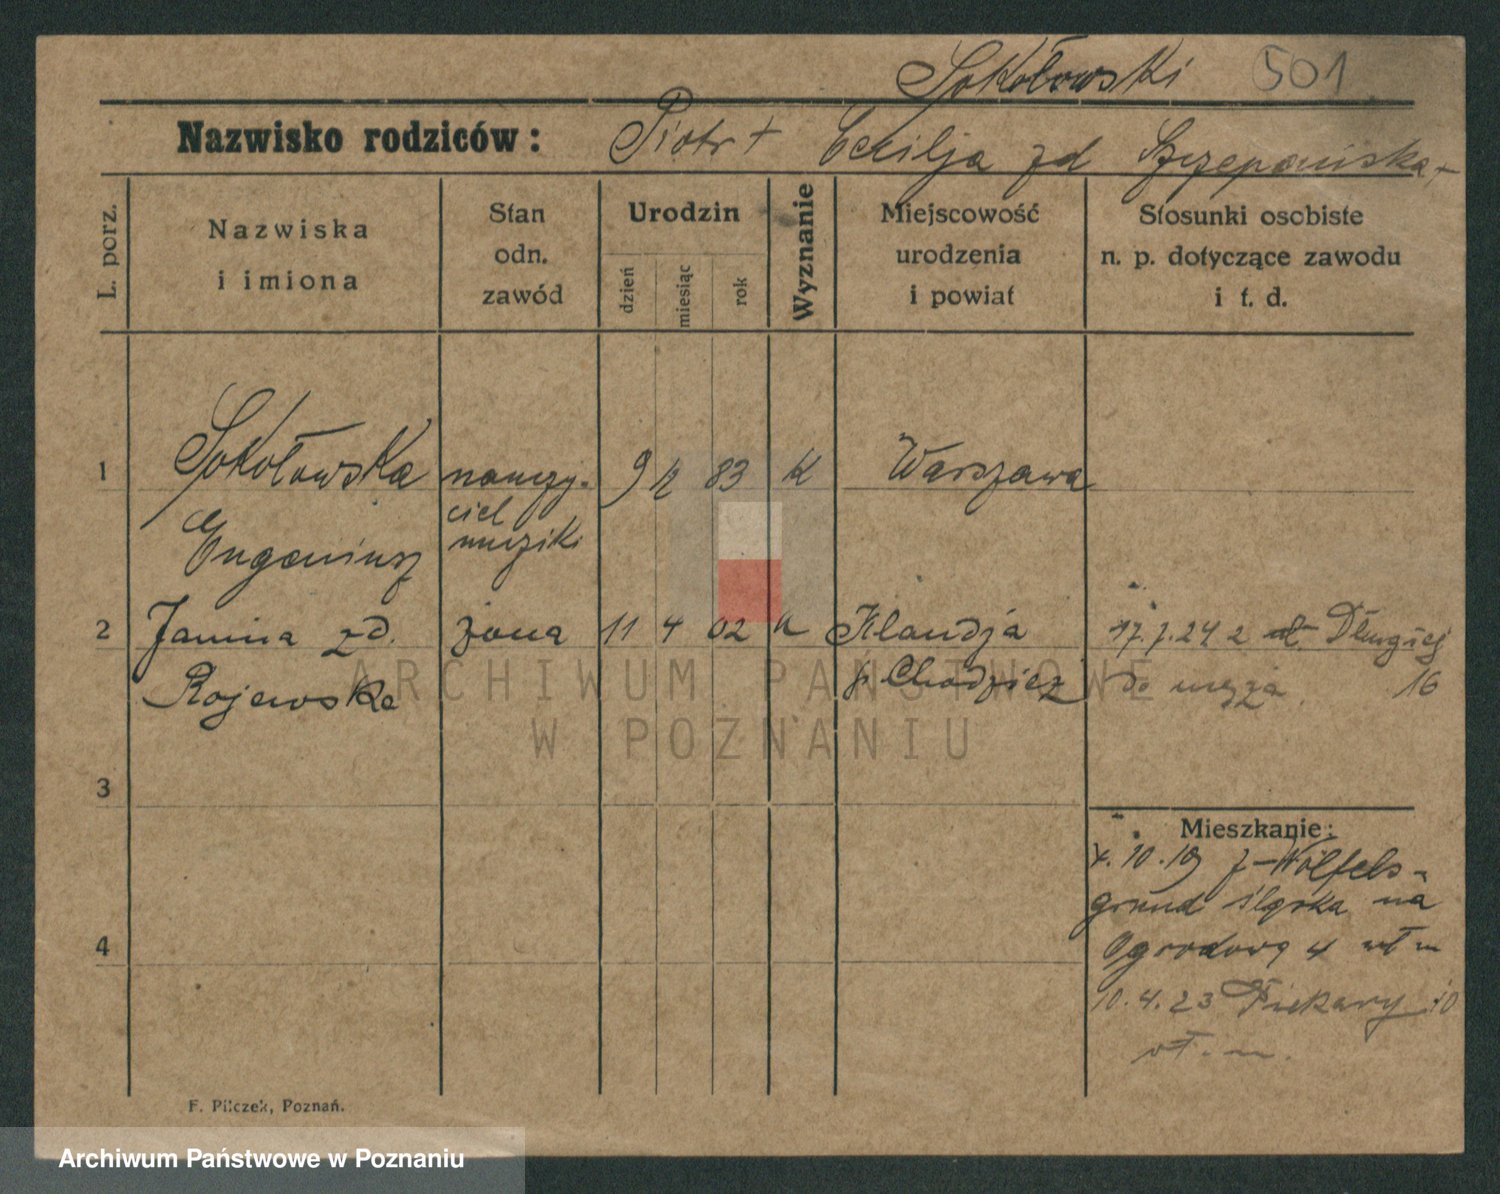 Sokołowski 501
Nazwisko rodziców: Piotr + Cecilja zd Szczepańska +
L. porz.
Nazwiska
i imiona
Stan
odn.
zawód
Urodzin
dzień
miesiąc
rok
Wyznanie
Miejscowość
urodzenia
i powiat
Stosunki osobiste
n. p. dotyczące zawodu
i t. d.
1 Sokołowska nauczy- 9 12 83 K Warszawa
ciel
Eugeniusz muzyki
2 Janina zd. żona 11 4 02 K Klaudja 17.7.24 z Długiej
Rajewska p. Chodzież do męża 16
3
Mieszkanie:
4.10.19 z Wölfels-
grund śląska na
4 Ogrodową 4 wł m
10.4.23 Piekary 10
wł. m.
F. Pilczek, Poznań.
ARCHIWUM PAŃSTWOWE
W POZNANIU
Archiwum Państwowe w Poznaniu